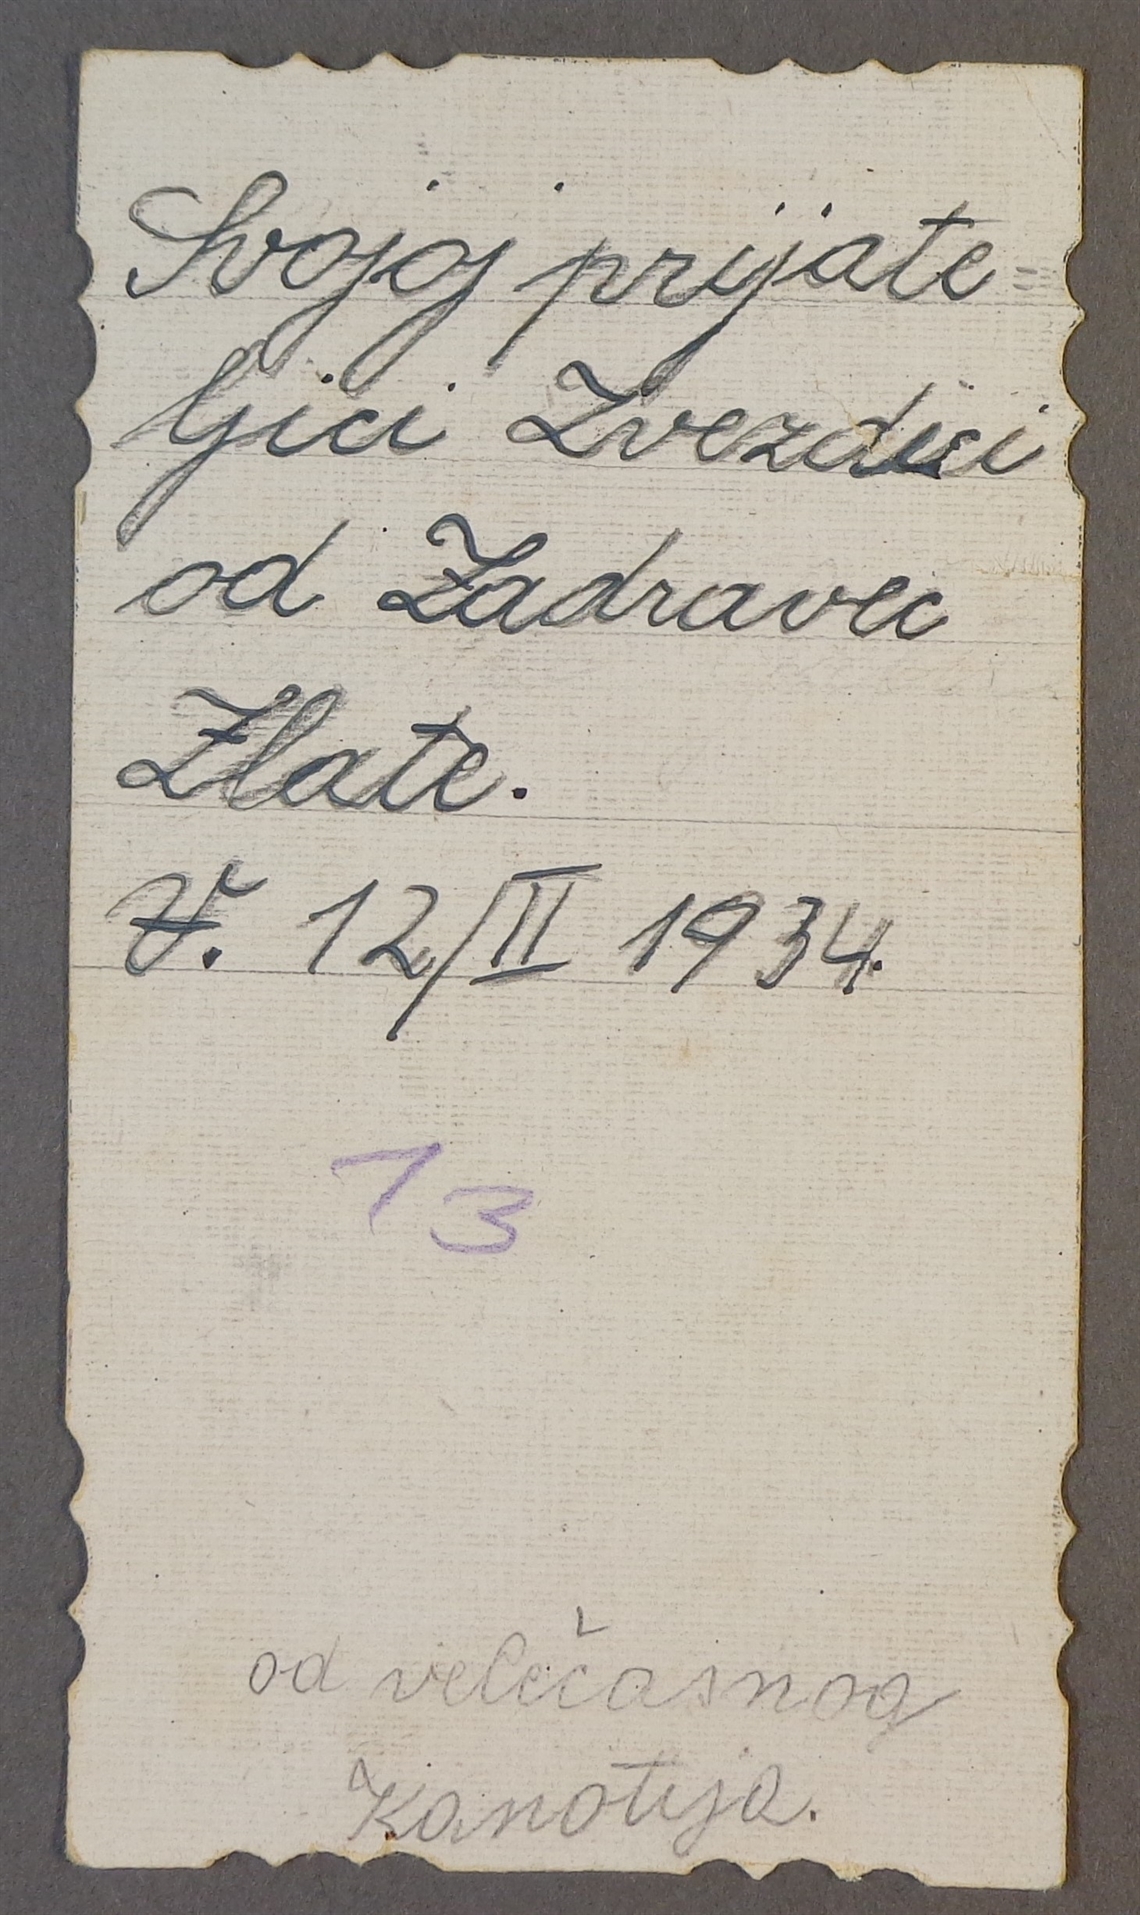 Svojoj prijate=
ljici Zvezdici
od Zadravec
Zlate.
V. 12/II 1934.
13
od velečasnog
Kanotija.